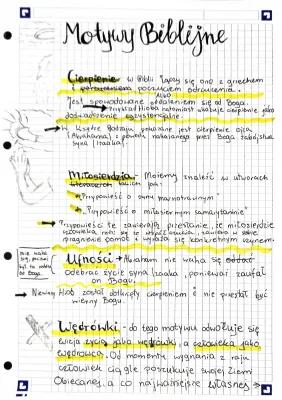 Motywy Biblijne
Cierpienie w Biblii łączy się ono z grzechem
i poczuciem odrzucenia.
ALBO
Jest spowodowane oddaleniem się od Boga.
Przykład Hioba natomiast ukazuje cierpienie jako
doświadczenie egzystencjalne.
→ W Księdze Rodzaju pokazane jest cierpienie ojca
(Abrahama) z powodu nakazanego przez Boga zabójstwa
syna (Izaaka)
Miłosierdzia- Możemy znaleść w utworach
takich jak:
"Przypowieść o synu marnotrawnym"
"Przypowieść o miłosiernym samarytaninie"
→ Przypowieści te zawierają przesłanie, że miłosierdzie
człowieka, zawiera w sobie
pragnienie pomocy i wyraża się konkretnym czynem.
nie waha
się, ponieważ
był to
od Boga.
Ufność → Abraham nie waha się oddać
odebrać życie syna Izaaka, ponieważ zaufał
on Bogu.
→ Niewinny Hiob został dotknięty cierpieniem i nie przestał być
wierny Bogu.
Wędrówki - do tego motywu odwołuje się
wizja życia jako wędrówki, a człowieka jako
wędrowca. Od momentu wygnania z raju
człowiek ciągle poszukuje swojej Ziemi
Obiecanej, a co najważniejsze własnej →